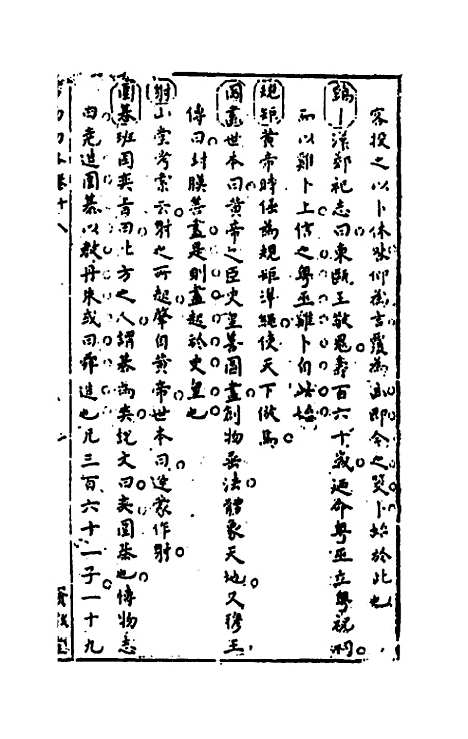 客投之以卜休咎仰為吉覆為凶即今之筊卜始於此也
鷄卜漢郊祀志曰東甌王敬鬼壽百六十歲廼命粤巫立粤祝祠
而以雞卜上信之粤巫雞卜自此始
規矩黄帝時倕為規矩準繩使天下倣焉
圖畫世本曰黄帝之臣史皇善圖畫創物垂法體象天地又穆王
傳曰封膜善畫是則畫起於史皇也
射山堂考索云射之所起肇自黄帝世本曰逄蒙作射
圍棊班固奕旨曰北方之人謂棊為奕說文曰奕圍棊也博物志
曰堯造圍棊以教丹朱或曰舜造也凡三百六十一子一十九